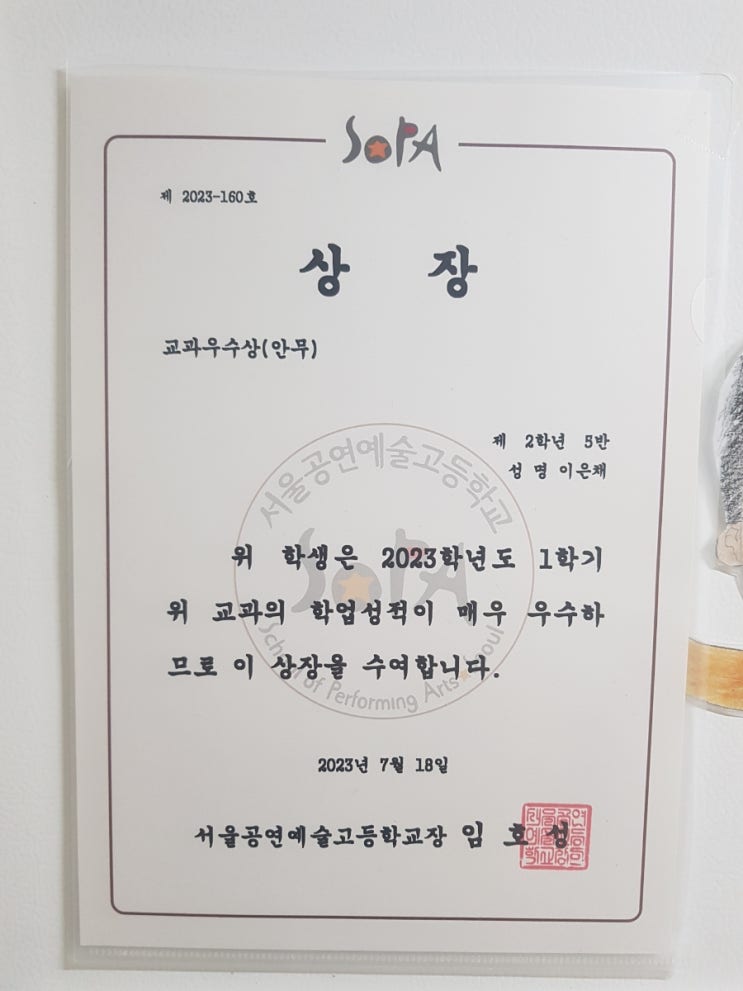 SOPA
제 2023-160호
상 장
교과우수상(안무)
제 2학년 5반
성 명 이은채
서울공연예술고등학교
SOPA
위 학생은 2023학년도 1학기
위 교과의 학업성적이 매우 우수하
므로 이 상장을 수여합니다.
School of Performing Arts Seoul
2023년 7월 18일
서울공연예술고등학교장 임 호 성